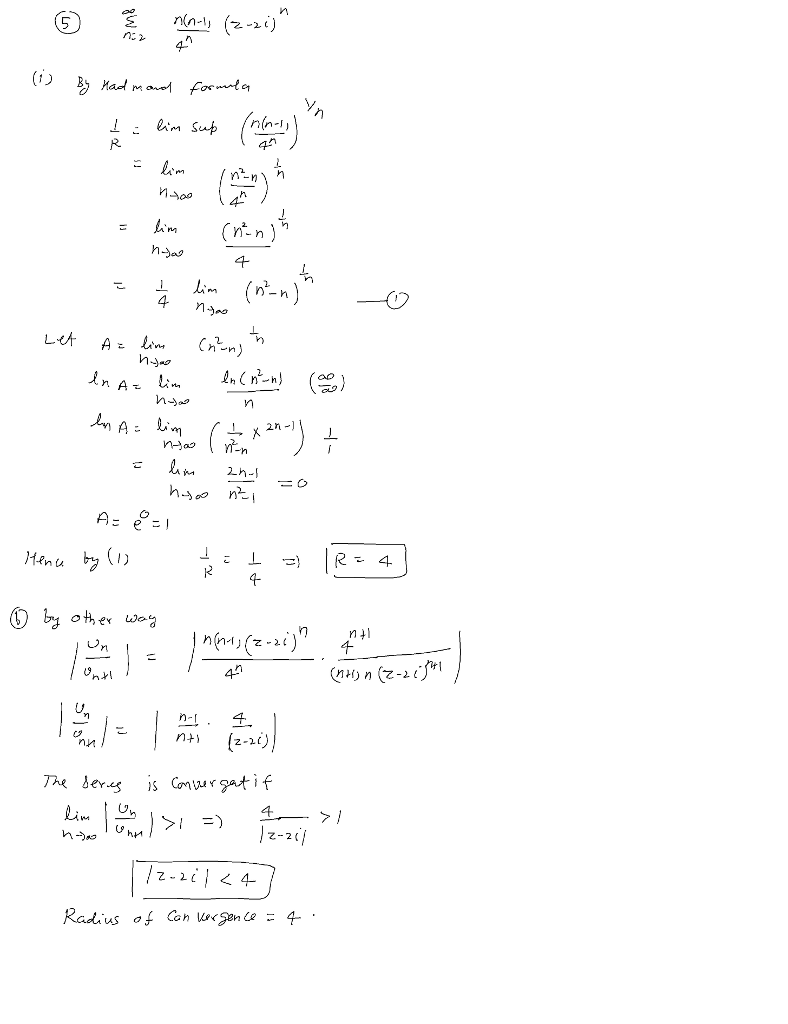 ⑤ ∞ Σ n=2 n(n-1) / 4^n (z-2i)^n
(i) By Hadmand formula
1/R = lim sup (n(n-1) / 4^n)^1/n
= lim n→∞ (n²-n / 4^n)^1/n
= lim n→∞ (n²-n)^1/n / 4
= 1/4 lim n→∞ (n²-n)^1/n —①
Let A = lim n→∞ (n²-n)^1/n
ln A = lim n→∞ ln(n²-n) / n (∞/∞)
ln A = lim n→∞ (1/n²-n × 2n-1) 1/1
= lim n→∞ 2n-1 / n²-1 = 0
A = e^0 = 1
Henu by (1) 1/R = 1/4 => R = 4
ⓑ by other way
|Un / Un+1| = |n(n-1)(z-2i)^n / 4^n . 4^n+1 / (n+1)n(z-2i)^n+1|
|Un / Un+1| = |n-1 / n+1 . 4 / (z-2i)|
The series is convergat if
lim n→∞ |Un / Un+1| >1 => 4 / |z-2i| >1
|z-2i| < 4
Radius of Convergence = 4 .